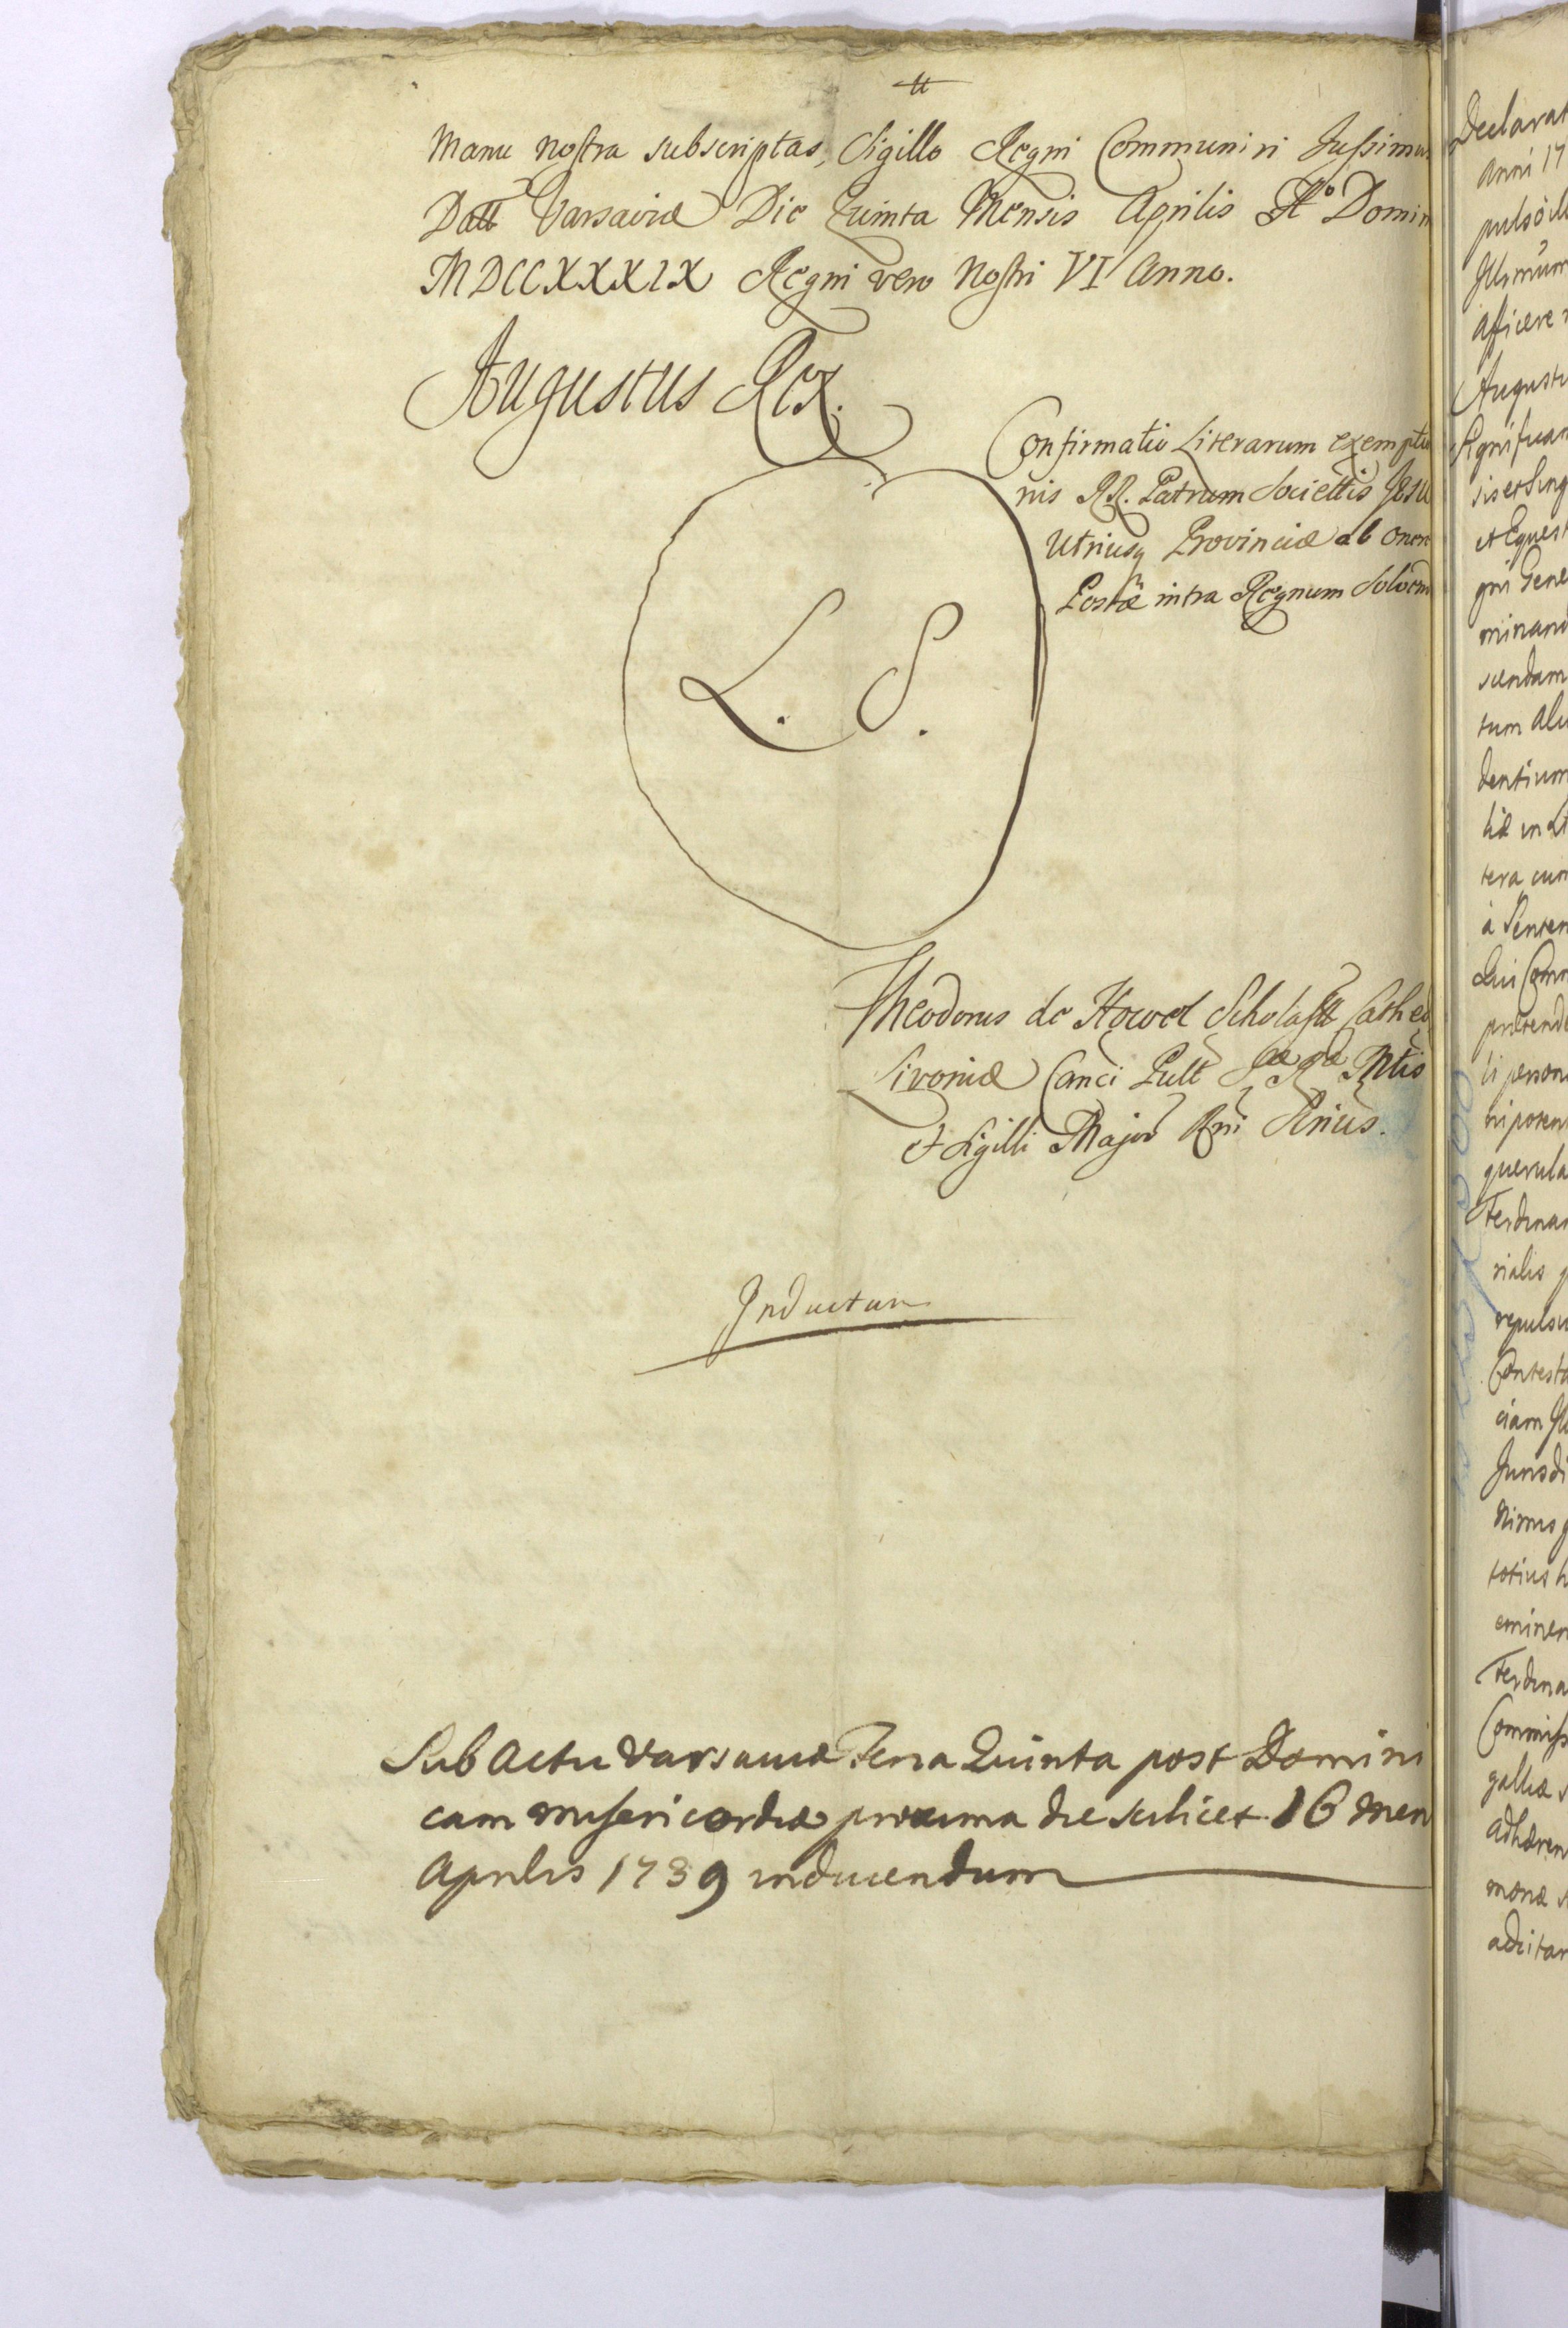 manu nostra subscriptas, Sigillo Regni Communiri Jussimus
Datt Varsaviæ Die Quinta Mensis Aprilis Aº Domin
MDCCXXXIX Regni vero Nostri VI Anno.
Augustus Rex.
Confirmatio Literarum exemptio
nis RR. Patrum Societtis Jesu
Utriusq Provinciæ ab onere
Postæ intra Regnum
L. S.
Theodorus de Howel Scholast Cathed
Livoniæ Canci Pult Sæ Ræ Mtis
et Sigilli Major Rni Srius.
Inductum
Sub Actu Varsaviæ Feria Quinta post Domini
cam misericordiæ proxima die scilicet 16 men
Aprilis 1739 inducendum
Declarat
Anni 17
Augustu
et Equest
gni Gene
sendam
tum
dentium
tera cum
à Senten
Qui Com
prætende
querula
Ferdinan
rialis
repulsa
Contesta
ciam
Jurisdi
totius
eminen
Ferdina
Commiss
galliæ
adhæren